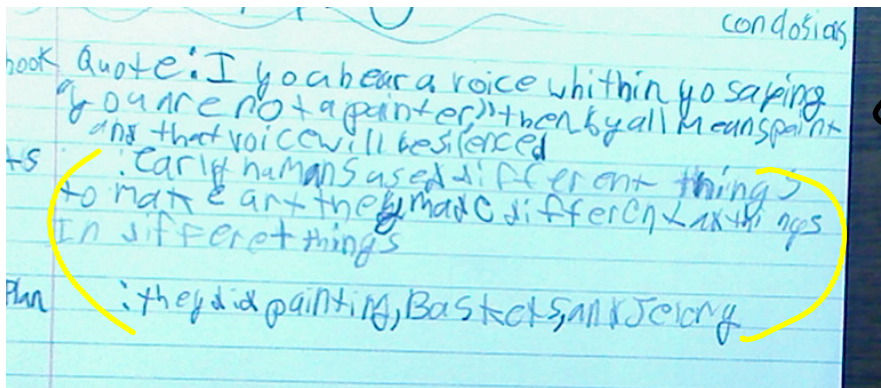 condosias
book Quote: I you hear a voice whithin yo saying
"you are not a painter" then by all means paint
and that voice will be silenced
ts : Early humans used different things
to make art they made different art things
In differet things
Plan : they did painting, Baskets, and Jelory